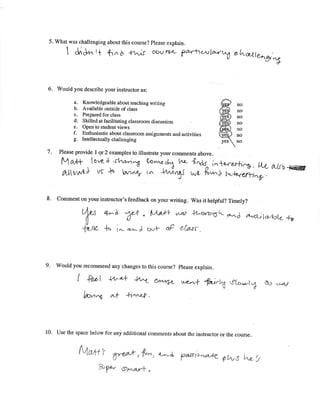 5. What was challenging about this course? Please explain.
I didn't find this course particularly challenging
6. Would you describe your instructor as:
a. Knowledgeable about teaching writing no
b. Available outside of class no
c. Prepared for class no
d. Skilled at facilitating classroom discussion no
e. Open to student views no
f. Enthusiastic about classroom assignments and activities no
g. Intellectually challenging yes no
7. Please provide 1 or 2 examples to illustrate your comments above.
Matt loved sharing comedy he finds interesting. He also
allowed us to bring in things we found interesting.
8. Comment on your instructor's feedback on your writing. Was it helpful? Timely?
Yes and yes. Matt was thorough and available to
talk to in and out of class.
9. Would you recommend any changes to this course? Please explain.
I feel that the course went fairly slowly was
boring at times.
10. Use the space below for any additional comments about the instructor or the course.
Matt's great, fun, and passionate plus he's
super smart.